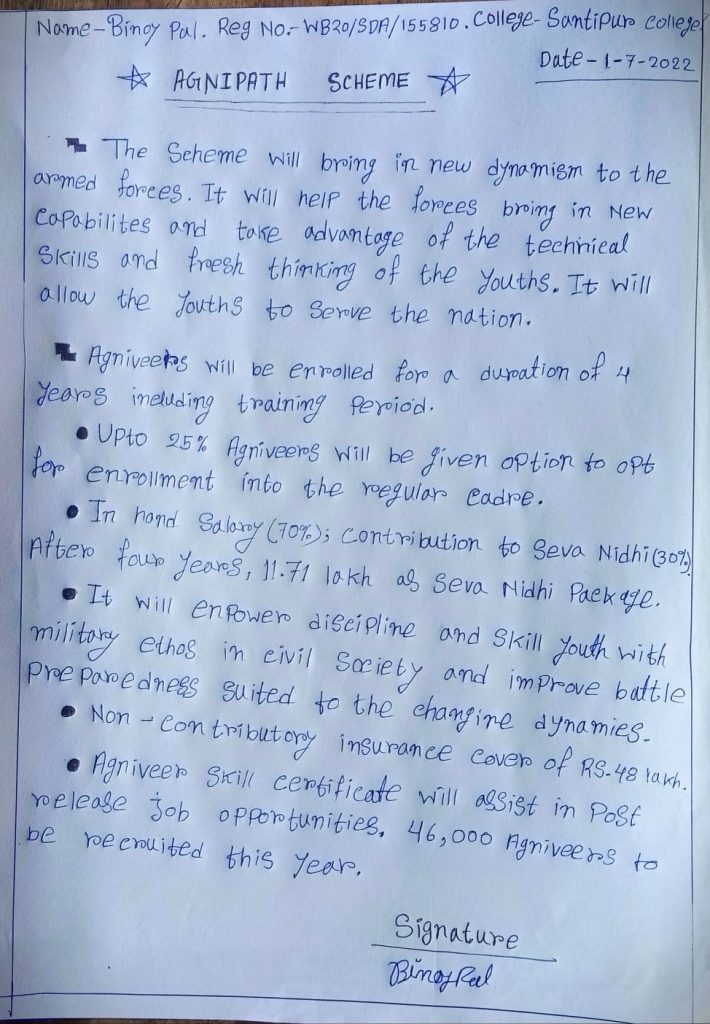 Name-Binoy Pal. Reg No.- WB20/SDA/155810. College- Santipur College
Date-1-7-2022
AGNIPATH SCHEME
The Scheme will bring in new dynamism to the
armed forces. It will help the forces bring in New
Capabilites and take advantage of the technical
Skills and fresh thinking of the Youths. It will
allow the Youths to serve the nation.
Agniveers will be enrolled for a duration of 4
Years including training Period.
• Upto 25% Agniveers will be given option to opt
for enrollment into the regular Cadre.
• In hand Salary (70%); contribution to Seva Nidhi (30%)
After four years, 11.71 lakh as Seva Nidhi Package.
• It will enpower discipline and Skill Youth with
military ethos in civil Society and improve battle
Preparedness suited to the changine dynamies.
• Non-contributory insurance cover of RS.48 lakh.
• Agniveer Skill certificate will assist in Post
release job opportunities. 46,000 Agniveers to
be recruited this Year.
Signature
Binoy Pal